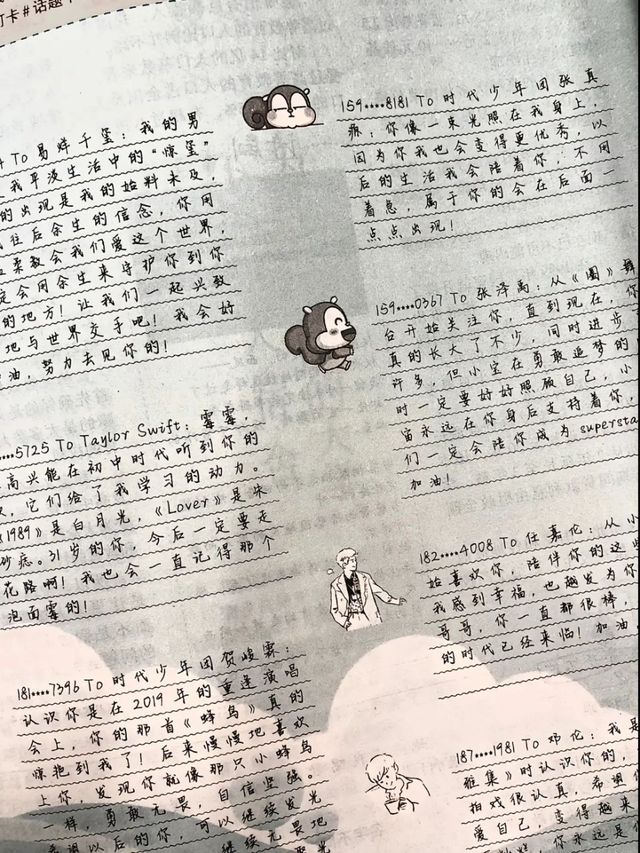 打卡#话题
To 易烊千玺：我的男
我平淡生活中的“惊玺”
的出现是我的始料未及，
往后余生的信念，你用
柔教会我们爱这个世界，
定会用余生来守护你到你
的地方！让我们一起兴致
地与世界交手吧！我会好
油，努力去见你的！
5725 To Taylor Swift：霉霉，
高兴能在初中时代听到你的
它们给了我学习的动力。
《1989》是白月光，《Lover》是朱
砂痣。31岁的你，今后一定要走
花路啊！我也会一直记得那个
泡面霉的！
181••••7396 To 时代少年团贺峻霖：
认识你是在 2019 年的重逢演唱
会上，你的那首《蜂鸟》真的
惊艳到我了！后来慢慢地喜欢
上你，发现你就像那只小蜂鸟
一样，勇敢无畏，自信坚强。
希望以后的你，可以继续发光
继续无畏地
159••••8181 To 时代少年团张真
源：你像一束光照在我身上，
因为你我也会变得更优秀，以
后的生活我会陪着你，不用
着急，属于你的会在后面一
点点出现！
159••••0367 To 张泽禹：从《圈》舞
台开始关注你，直到现在，你
真的长大了不少，同时进步
许多，但小宝在勇敢追梦的
时一定要好好照顾自己，小
宙永远在你身后支持着你，
们一定会陪你成为 supersta
加油！
182••••4008 To 任嘉伦：从小
始喜欢你，陪伴你的这些
我感到幸福，也越发为你
哥哥，你一直都很棒，
的时代已经来临！加油
187••••1981 To 邓伦：我是
雅集》时认识你的，
拍戏很认真，希望
爱自己，变得越来
你永远是